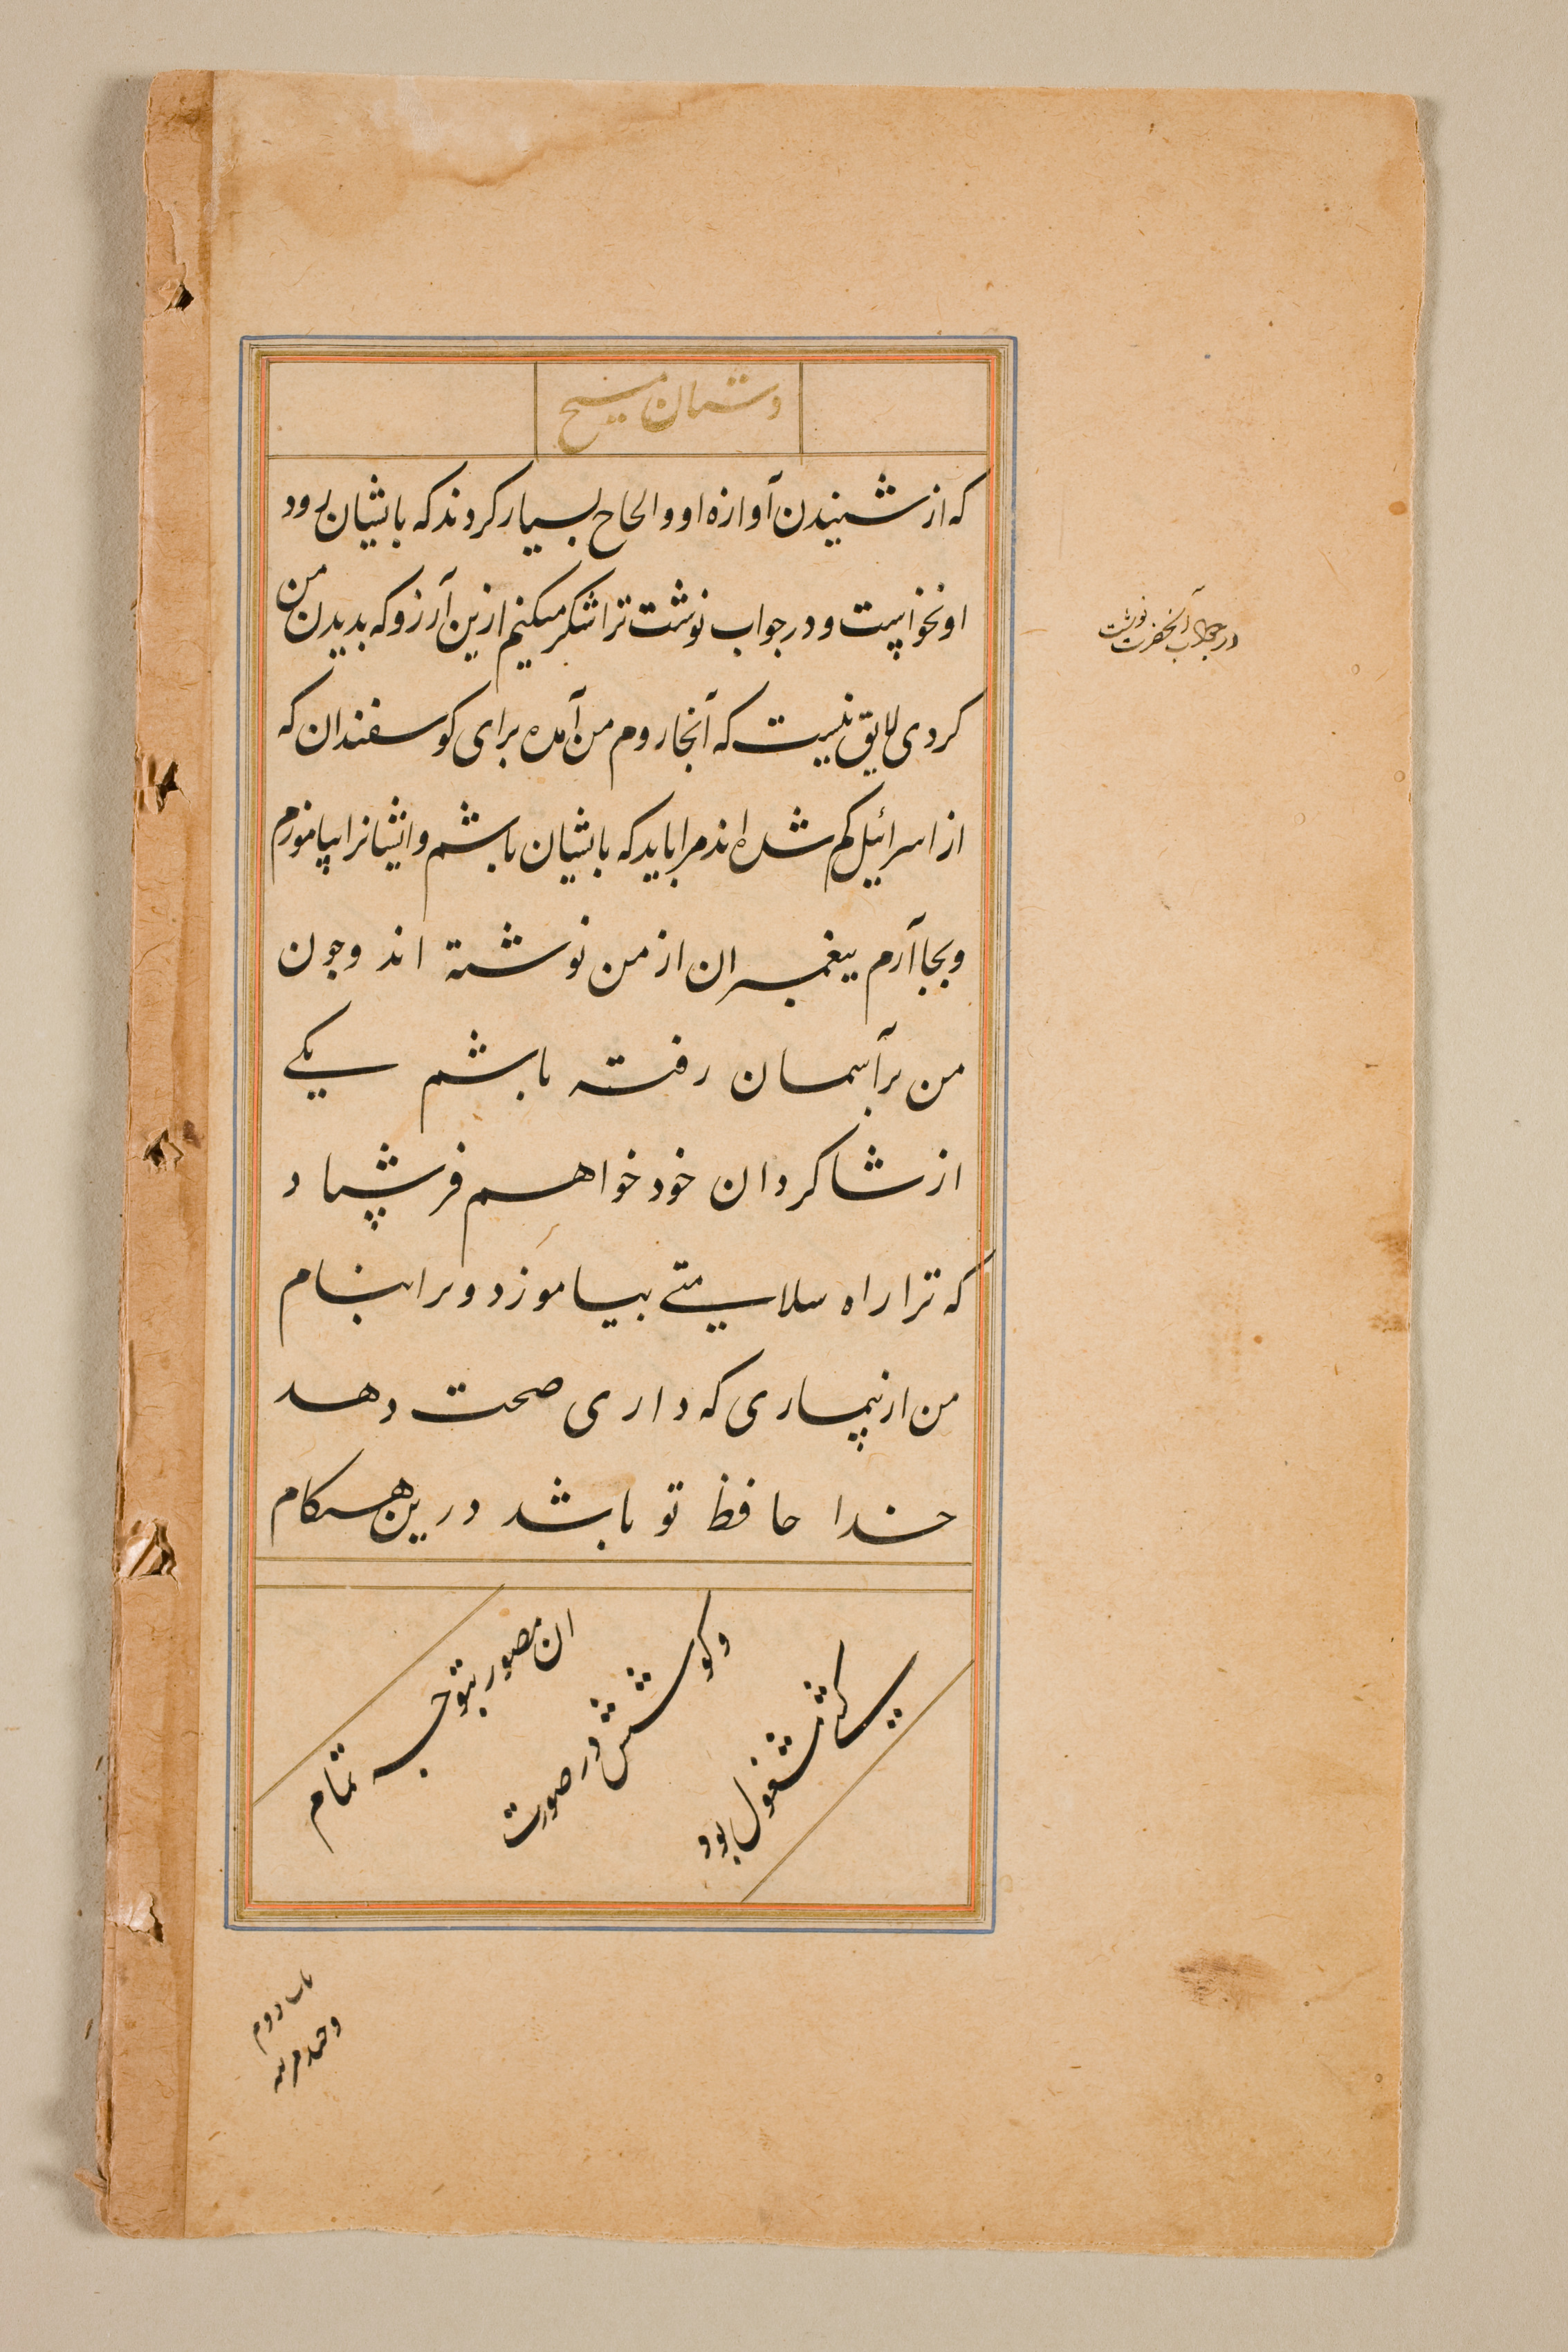 دستان مسیح
که از شنیدن آوازه او و الحاح بسیار کردند که بایشان برود
او نخواست و در جواب نوشت ترا شکر میکنم ازین آرزو که بدیدن من
در جواب آنحضرت نوشت
کردی لایق نیست که آنجا روم من آمده برای کوسفندان که
از اسرائیل کم شده اند مرا باید که بایشان باشم و ایشانرا بیاموزم
و بجا آرم پیغمبران از من نوشته اند و چون
من بر آسمان رفته باشم یکی
از شاکردان خود خواهم فرستاد
که ترا راه سلامتی بیاموزد و برا بنام
من از بیماری که داری صحت دهد
خدا حافظ تو باشد درین هنکام
ان مصور بتوجه تمام
وکوشش در صورت
مشغول بود